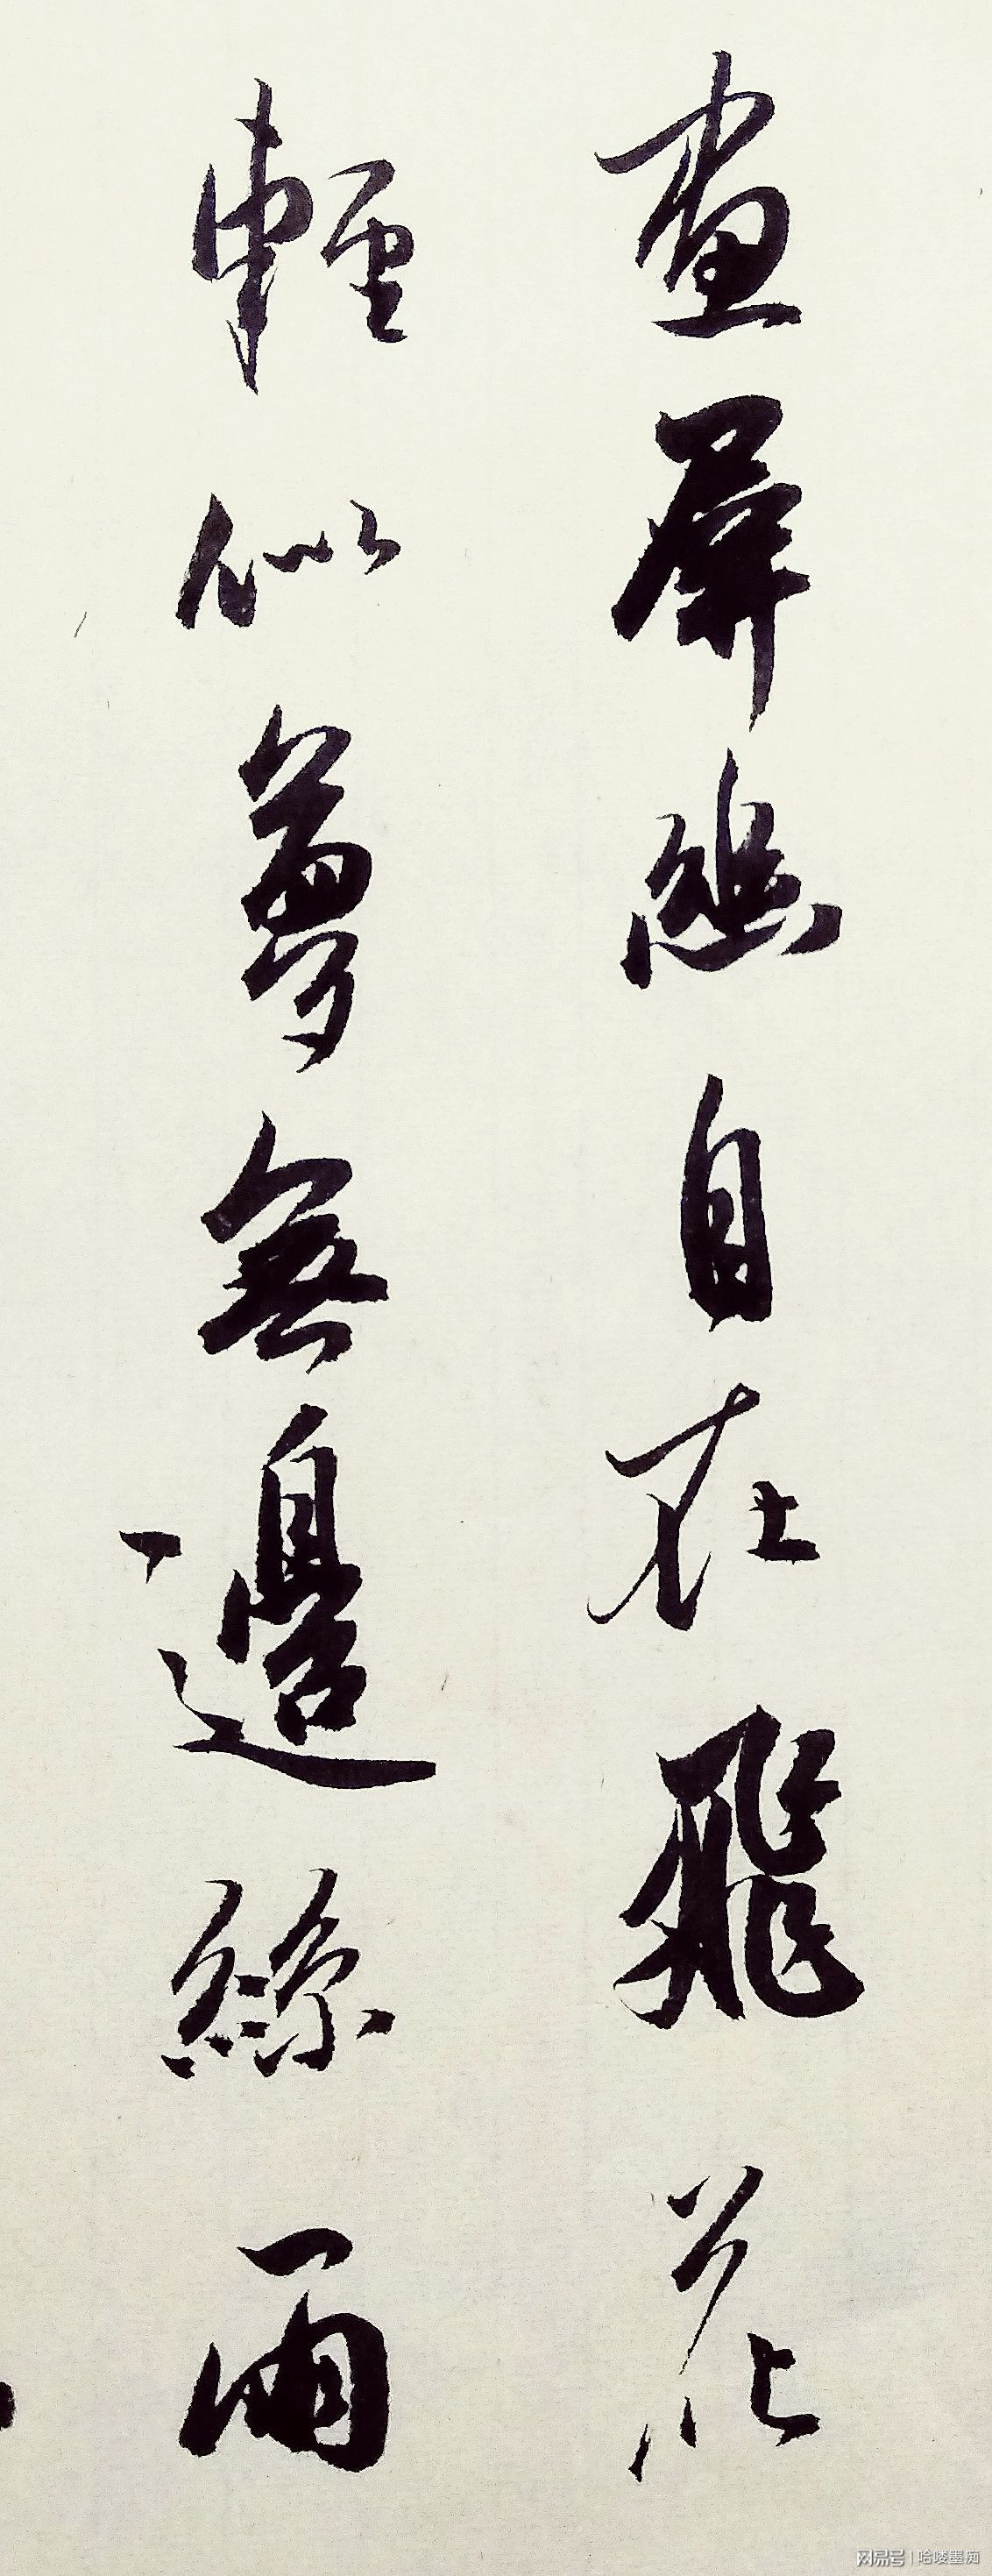 畫屏幽自在飛花
輕似夢無邊絲雨
网易号 | 哈喽墨痴